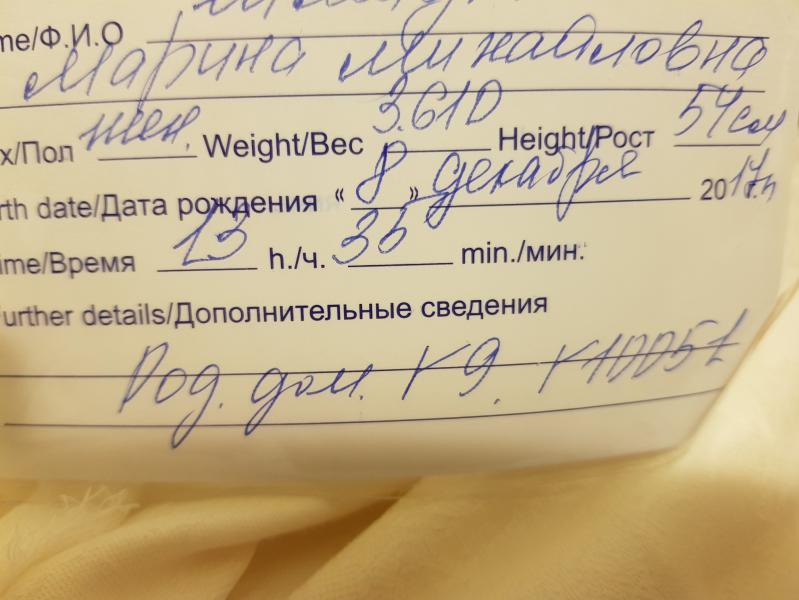 me/Ф.И.О
Марина Михайловна
x/Пол жен. Weight/Вес 3.610 Height/Рост 54 см
rth date/Дата рождения “ 8 ” декабря 2017г.
ime/Время 13 h./ч. 35 min./мин.
urther details/Дополнительные сведения
Род. дом. К 9.